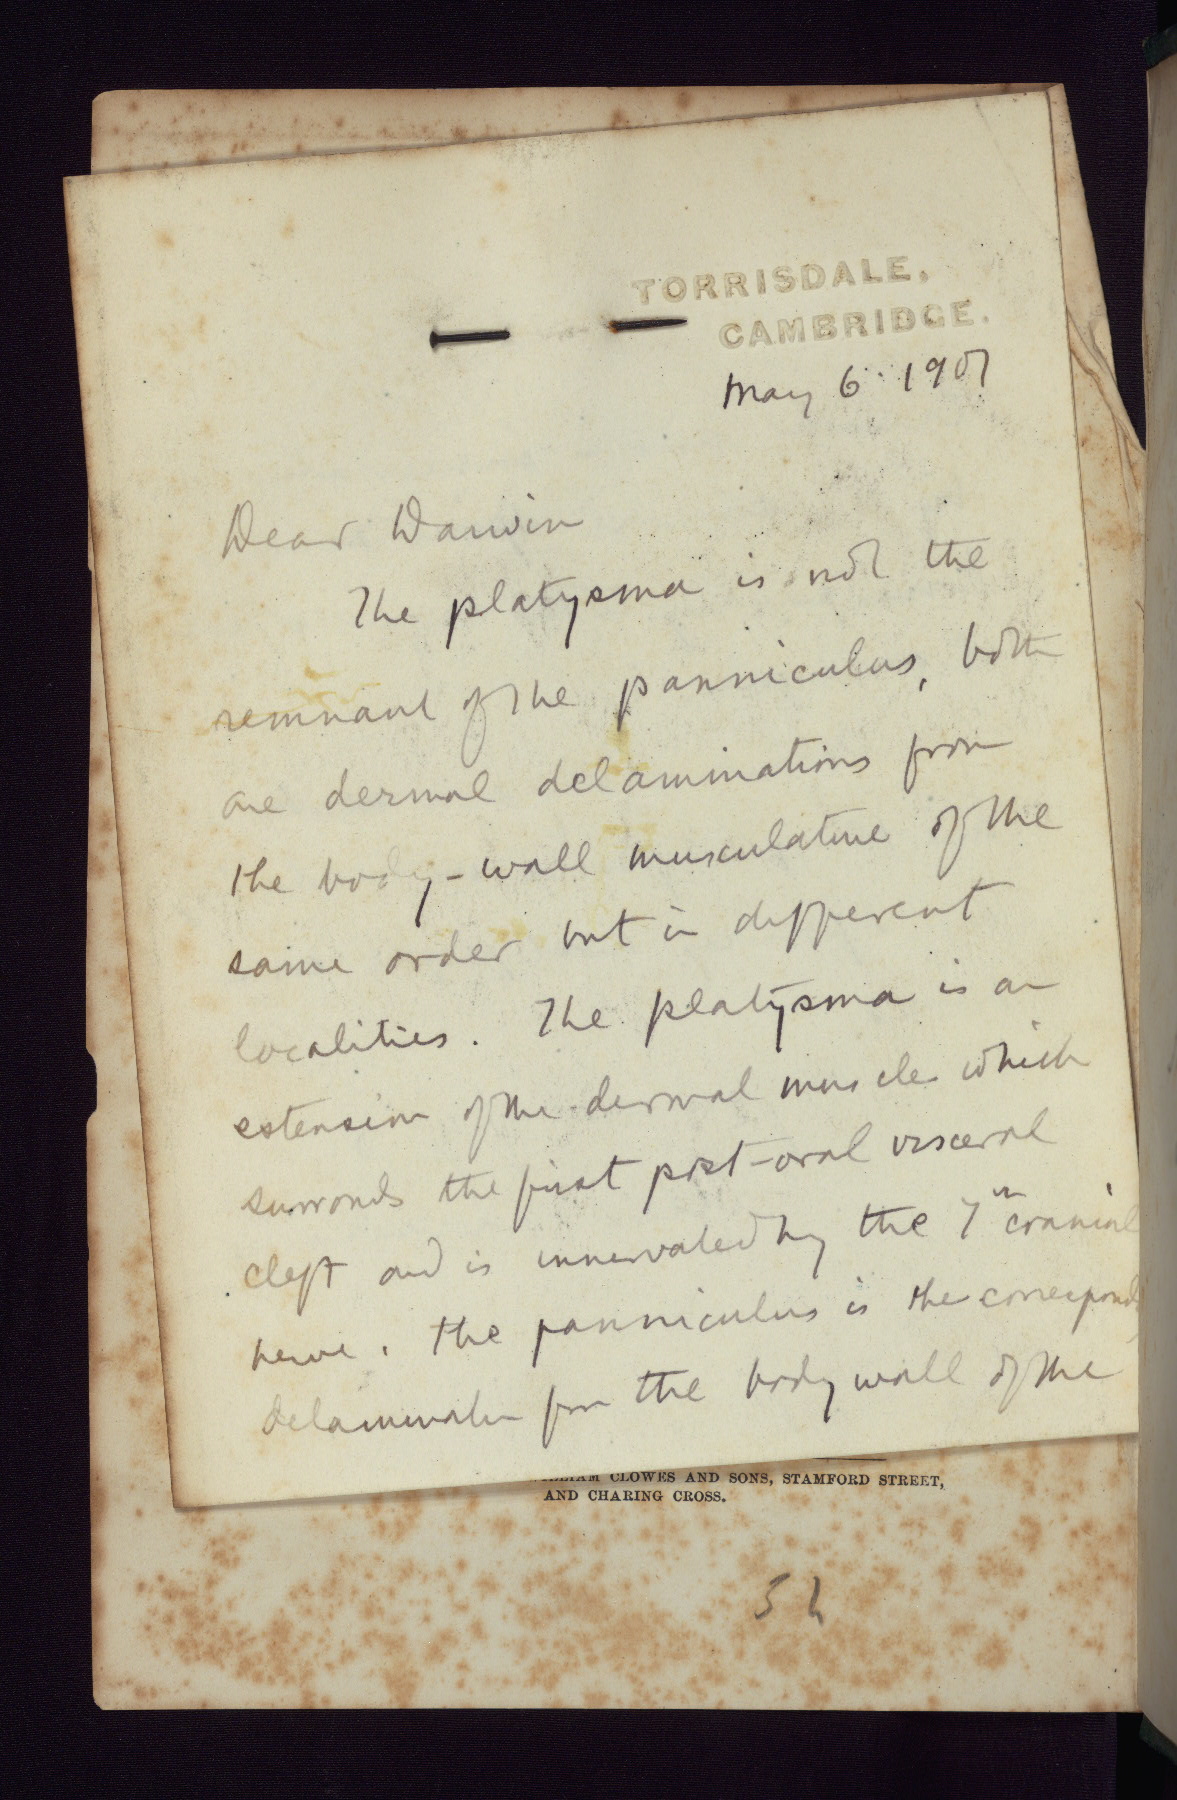 TORRISDALE,
CAMBRIDGE.
May 6. 1907
Dear Darwin
The platysma is not the
remnant of the panniculus, both
are dermal delaminations from
the body-wall musculature of the
same order but in different
localities. The platysma is an
extension of the dermal muscles which
surrounds the first post-oral visceral
cleft and is innervated by the 7th cranial
nerve. The panniculus is the correspond
delamination from the body wall of the
WILLIAM CLOWES AND SONS, STAMFORD STREET,
AND CHARING CROSS.